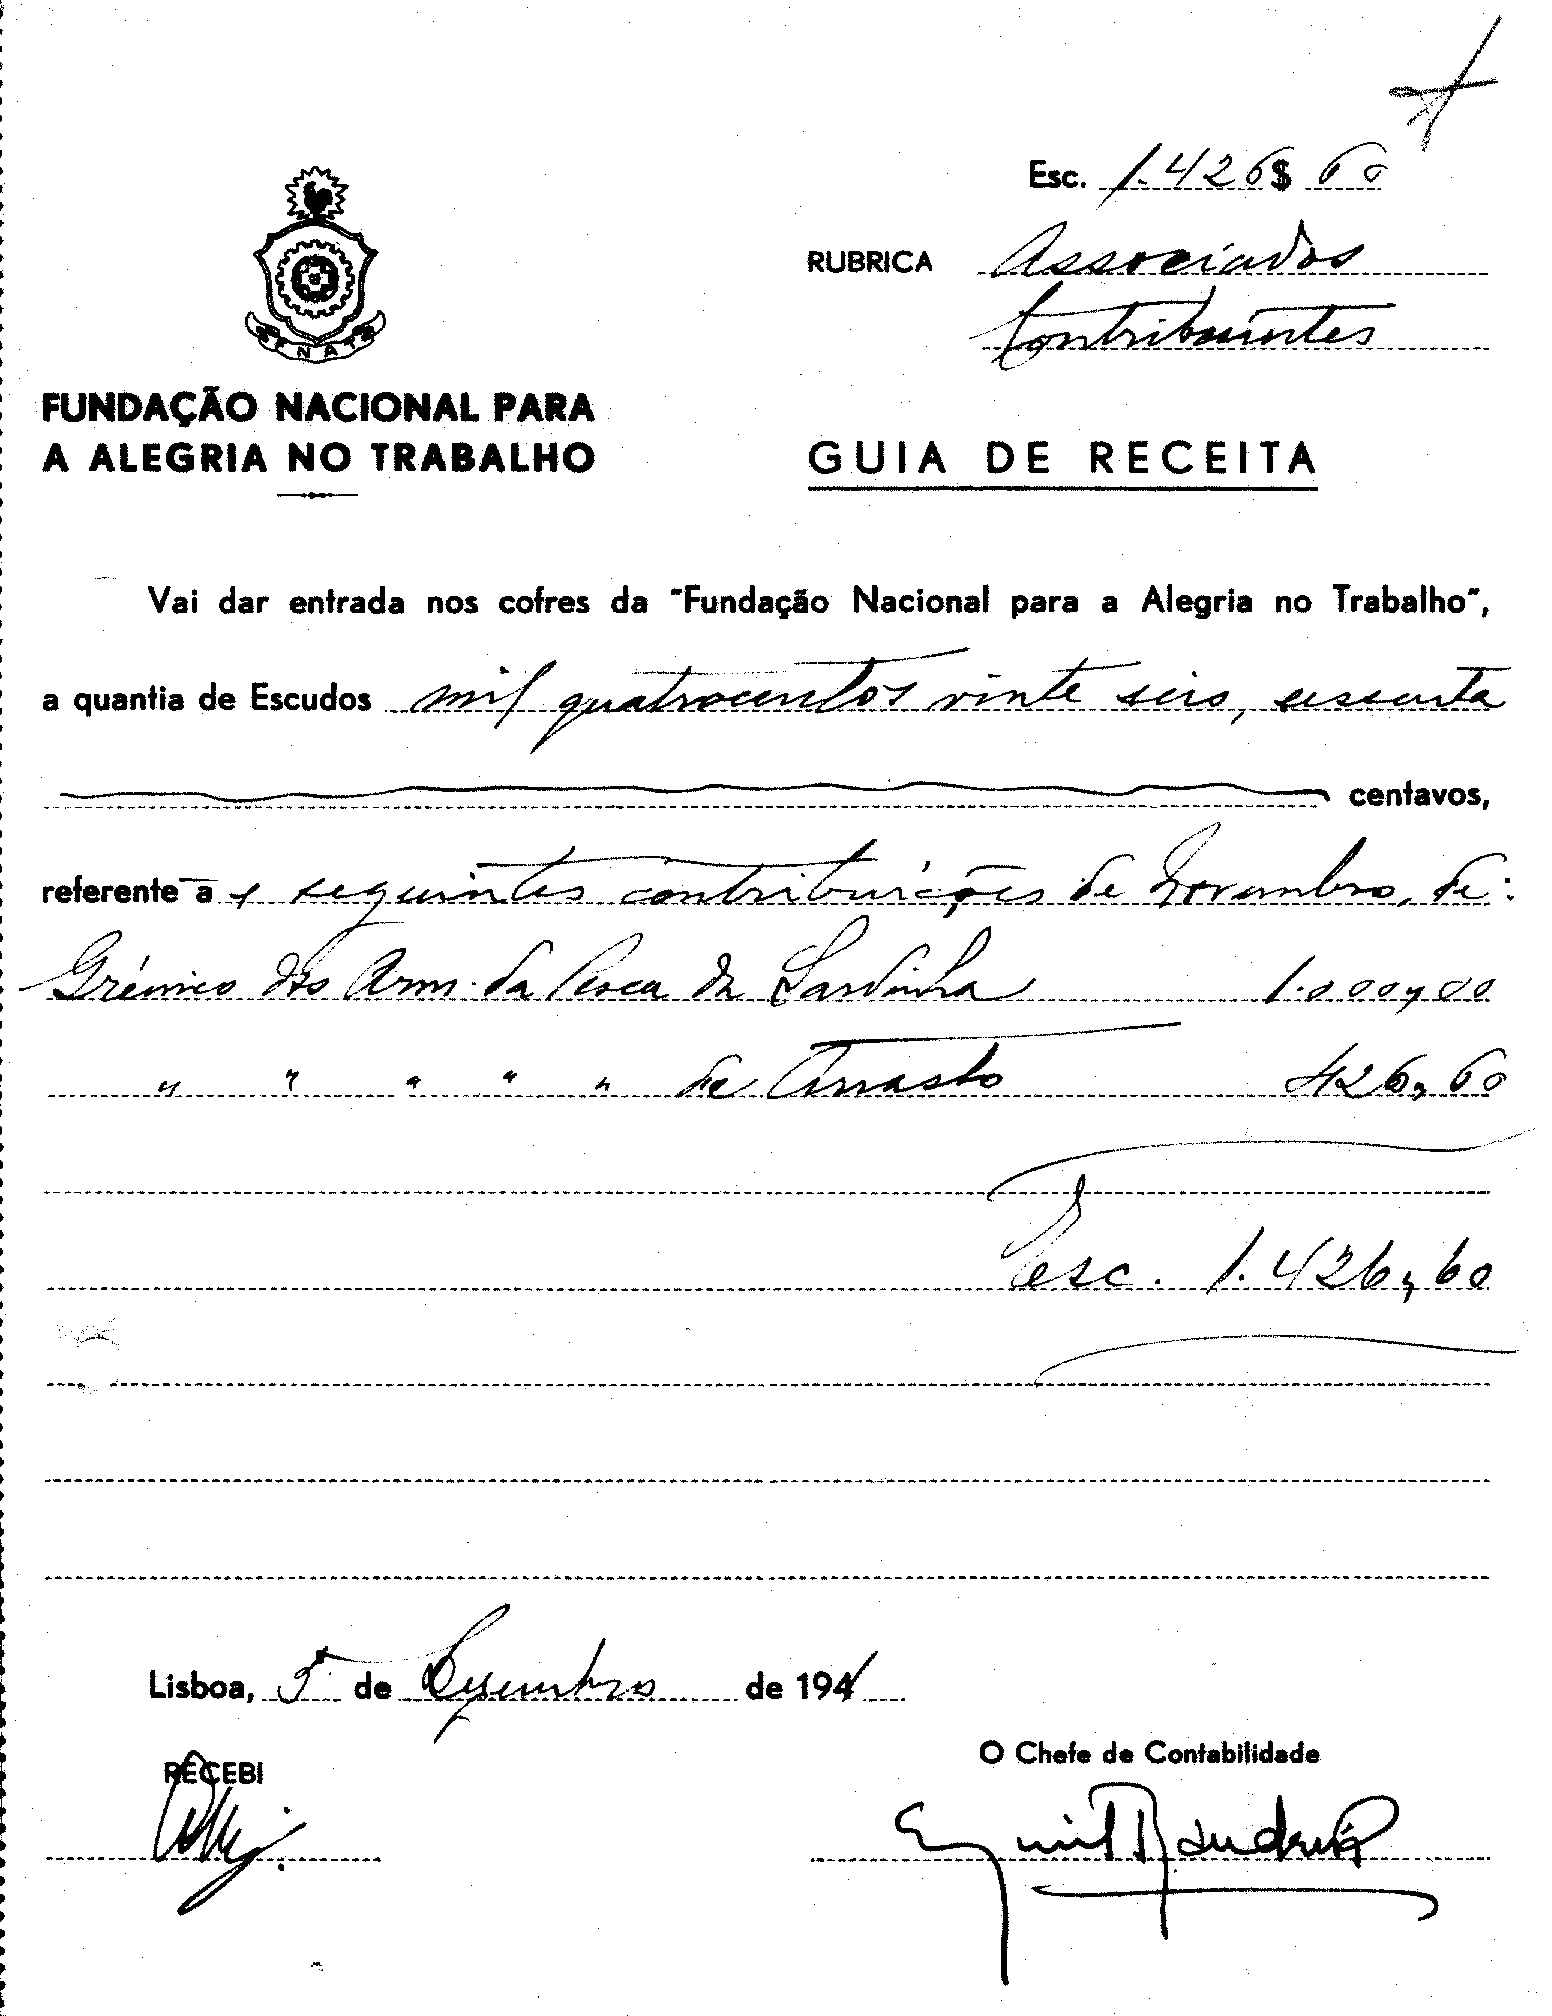 Esc. 1.426$60
RUBRICA Associados
Contribuintes
FNAT
FUNDAÇÃO NACIONAL PARA
A ALEGRIA NO TRABALHO
GUIA DE RECEITA
Vai dar entrada nos cofres da "Fundação Nacional para a Alegria no Trabalho",
a quantia de Escudos mil quatrocentos vinte seis, sessenta
centavos,
referente a s seguintes contribuições de Novembro, de:
Grémio dos Arm. da Pesca da Sardinha 1.000,00
" " " " " de Arrasto 426,60
Esc. 1.426,60
Lisboa, 5 de Dezembro de 1941
RECEBI
O Chefe de Contabilidade